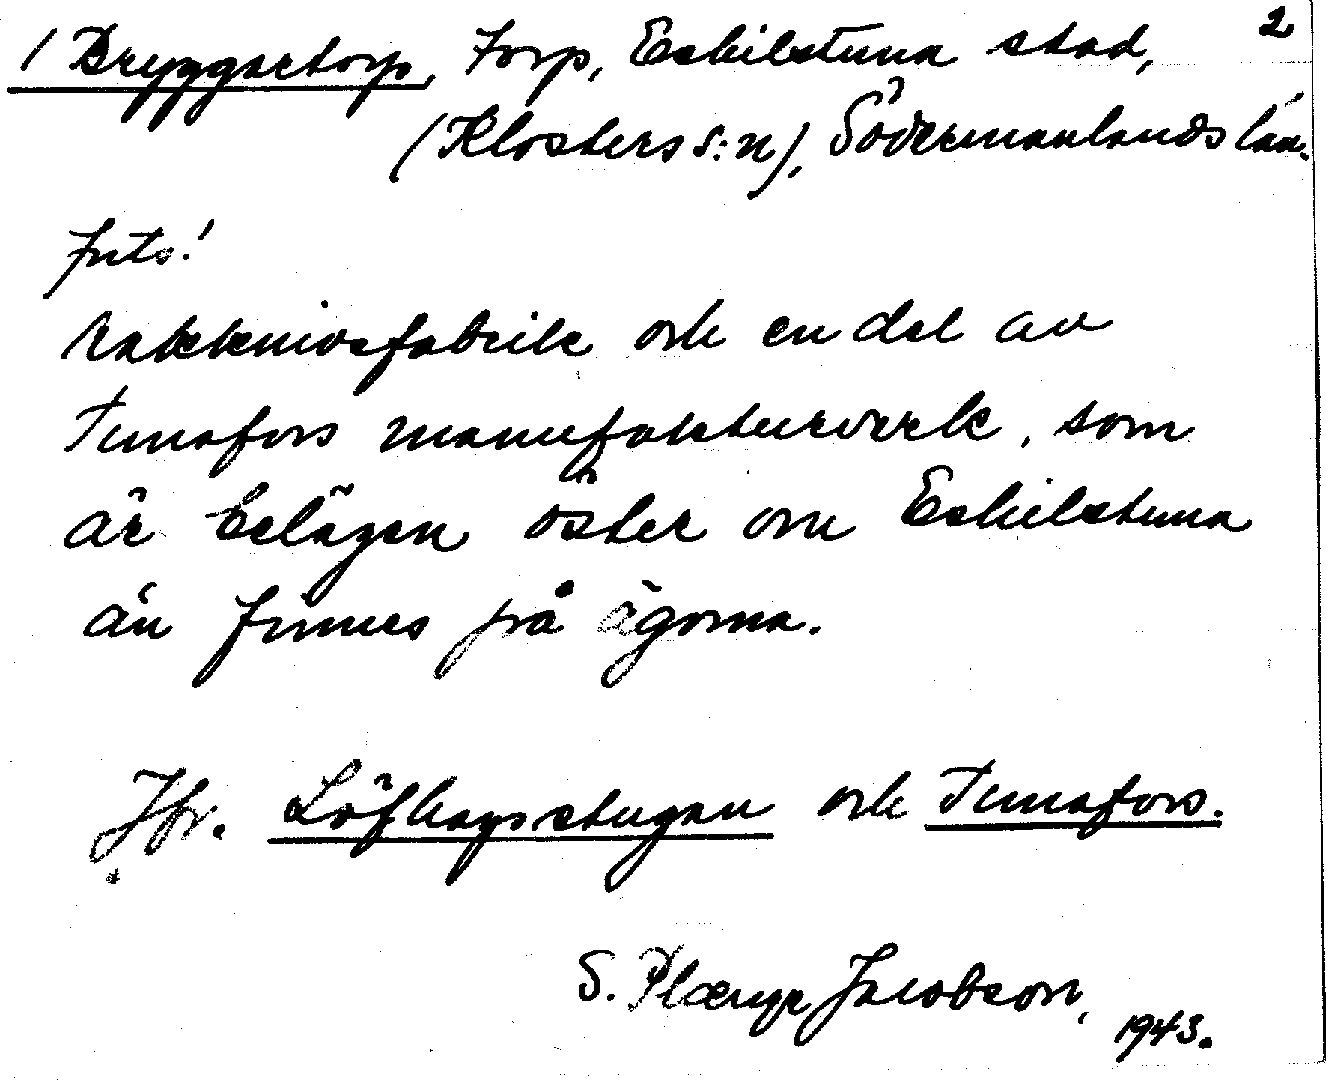 2
/ Bryggartorp, Torp, Eskilstuna stad,
(Klosters s:n), Södermanlands län.
forts!
rakknivsfabrik och en del av
Tunafors manufakturverk, som
är belägen öster om Eskilstuna
ån finnes på ägorna.
Jfr. Löfhagsstugan och Tunafors.
S. Plænge Jacobson,
1943.